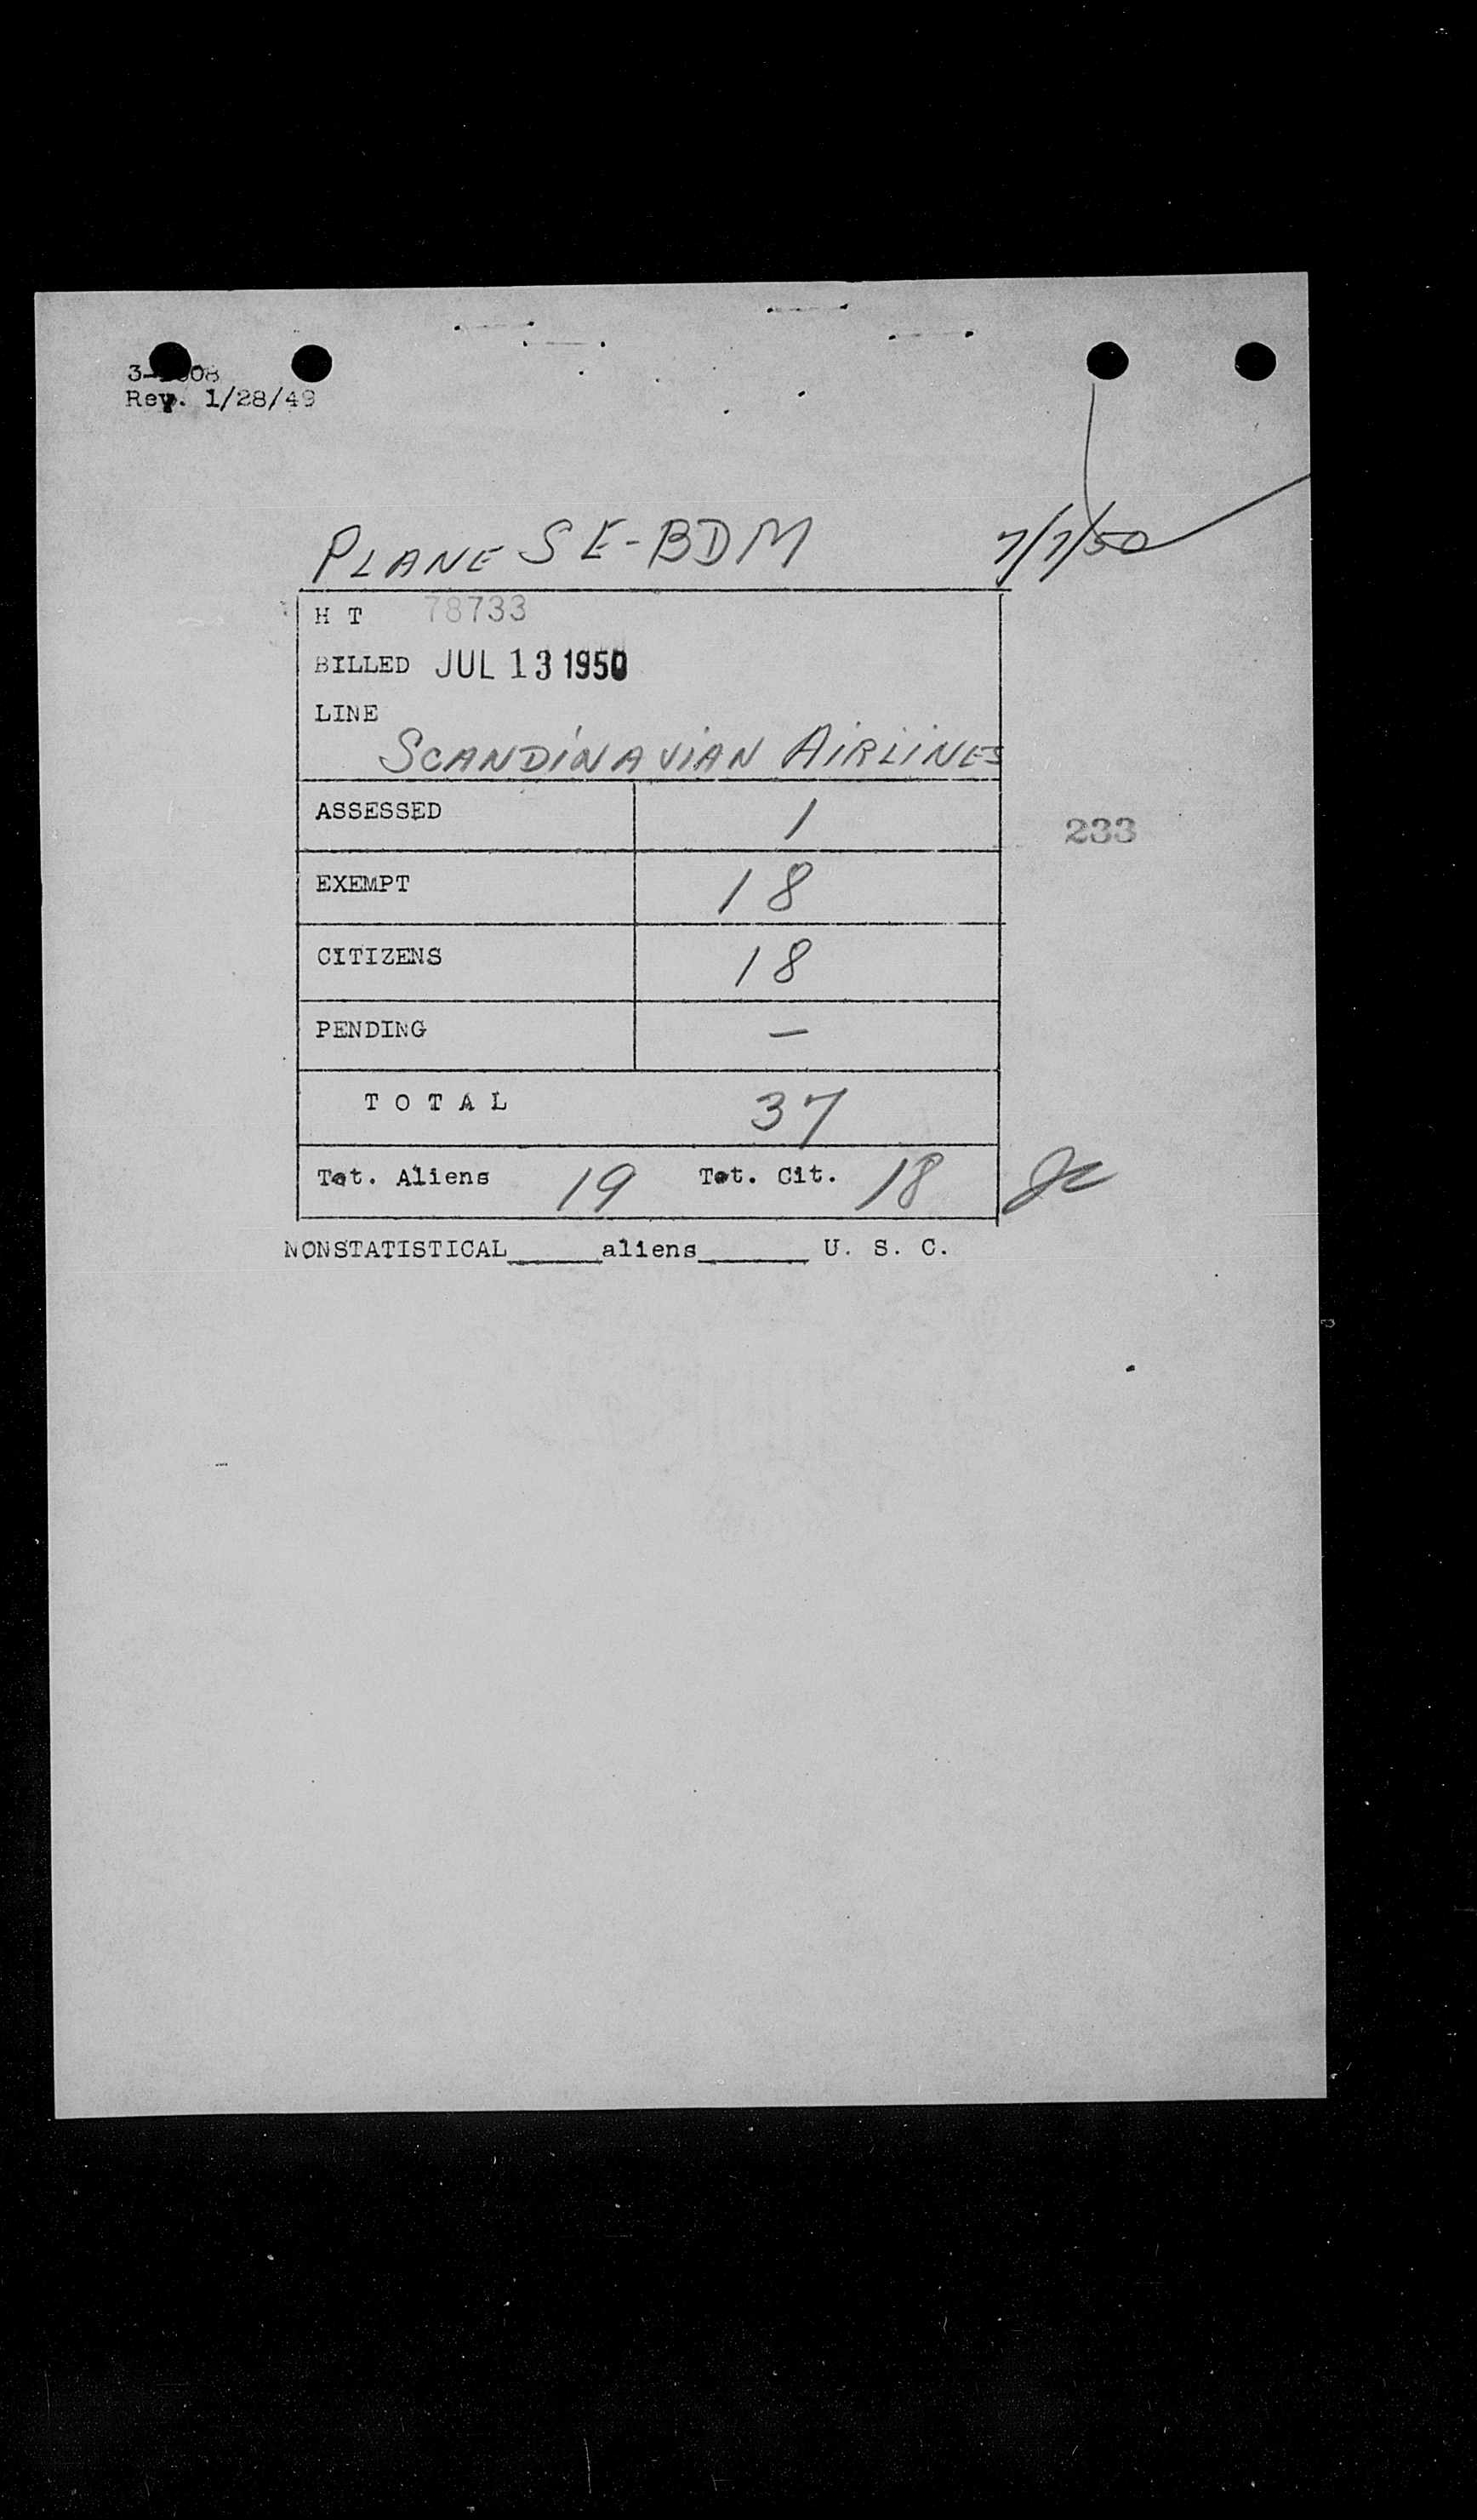 Rev. 1/28/49
PLANE SE-BDM 7/7/50
H T 78733
BILLED JUL 13 1950
LINE
SCANDINAVIAN AIRLINES
ASSESSED 1
233
EXEMPT 18
CITIZENS 18
PENDING —
TOTAL 37
Tot. Aliens 19 Tot. Cit. 18
NONSTATISTICAL_____aliens______ U. S. C.